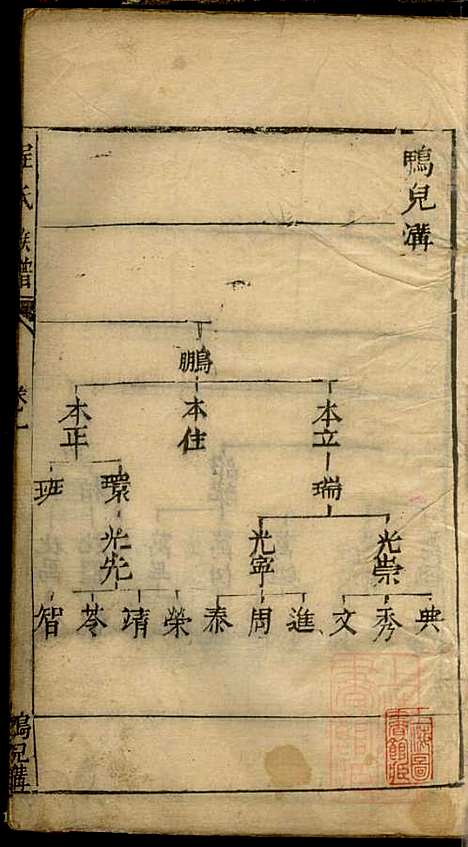 鴨兒溝
鵬
本立 本住 本正
瑞 環 班
光崇 光寧 光先
典 秀 文 進 周 泰 榮 靖 苓 智
氏族譜
卷一
鴨兒溝